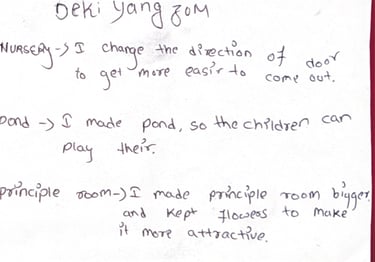 Deki yang zom
NURSERY-> I change the direction of door
to get more easir to come out.
Pond -> I made pond, so the children can
Play their.
principle room-> I made principle room bigger.
and kept flowess to make
it more attractive.